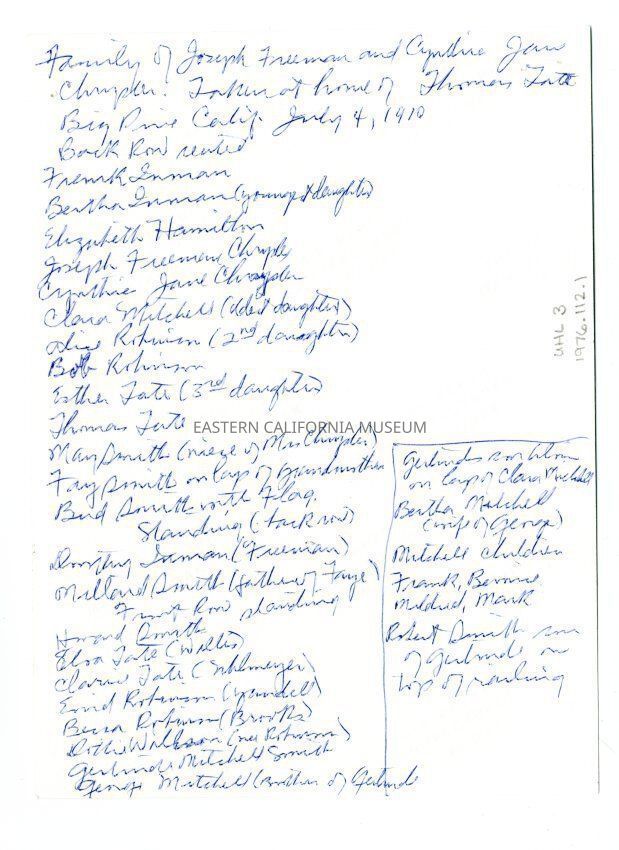 Family of Joseph Freeman and Cynthia Jane
Chrysler. Taken at home of Thomas Tate
Big Pine Calif. July 4, 1910
Back Row seated
Frank Inman
Bertha Inman (youngest daughter)
Elizabeth Hamilton
Joseph Freeman Chrysler
Cynthia Jane Chrysler
Clara Mitchell (oldest daughter)
Alice Robinson (2nd daughter)
Bob Robinson
Esther Tate (3rd daughter)
Thomas Tate
May Smith (niece of Mrs Chrysler)
Fay Smith on lap of Grandmother
Bud Smith with Flag.
Standing (back row)
Inman (Freeman)
Millard Smith (father of Faye)
Front Row standing
Howard Smith
Elva Tate (Willis)
Clarice Tate (Uhlmeyer)
Enid Robinson (Yandell)
Robinson (Brooks)
(nee Robinson)
Gertrude Mitchell Smith
George Mitchell (Brother of Gertrude
Gertrudes son
on lap of Clara Mitchell
Bertha Mitchell
(wife of George)
Mitchell children
Frank, Bernice
Mildred, Mark
Robert Smith son
of Gertrude on
top of railing
UHL 3
1976.112.1
EASTERN CALIFORNIA MUSEUM